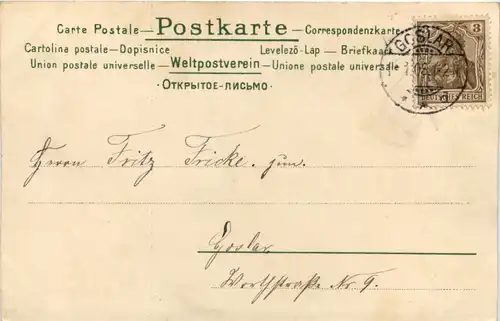 Carte Postale — Postkarte — Correspondenzkarte
Cartolina postale — Dopisnice Levelező-Lap — Briefkaart
Union postale universelle — Weltpostverein — Unione postale universale
·Открытое-письмо·
GOSLAR
3
DEUTSCHES REICH
Herrn Fritz Fricke. jun.
Goslar
Worthstraße Nr 9.